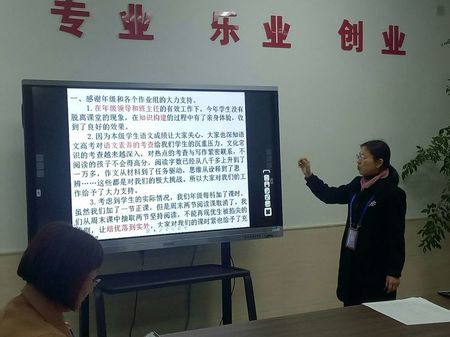 专业 乐业 创业
一、感谢年级和各个作业组的大力支持。
1. 在年级领导和班主任的有效工作下，今年学生没有
脱离课堂的现象，在知识构建的过程中有了亲身体验，收
到了良好的效果。
2. 因为本级学生语文成绩让大家关心，大家也深知语
文高考对语文素养的考查给我们学生的沉重压力。文化常
识的考查越来越深入，对热点的考查与写作紧密联系，不
阅读的孩子不会得高分。阅读字数已经从八千多上升到了
一万多，作文从材料到了任务驱动，思维从诠释到了思
辨……这些都是对我们的极大挑战。所以大家对我们的工
作给予了大力支持。
3. 考虑到学生的实际情况，我们年级每科加了课时，
虽然我们加了一节正课，但是周末两节阅读课取消了。我
们从周末课中抽取两节坚持阅读，不能再现优生被掐尖的
则，让培优落到实处，大家对我们的课时紧也给予了充